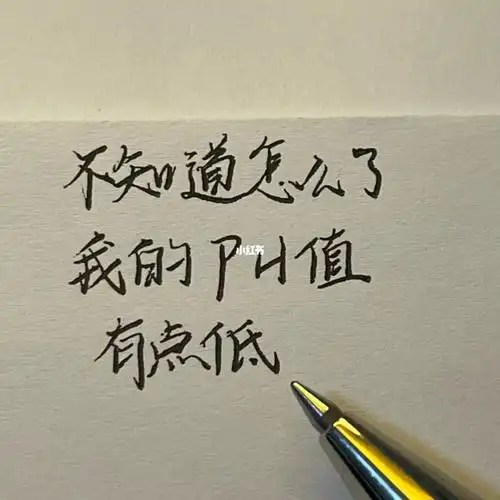 不知道怎么了
我的PH值
有点低
小红书